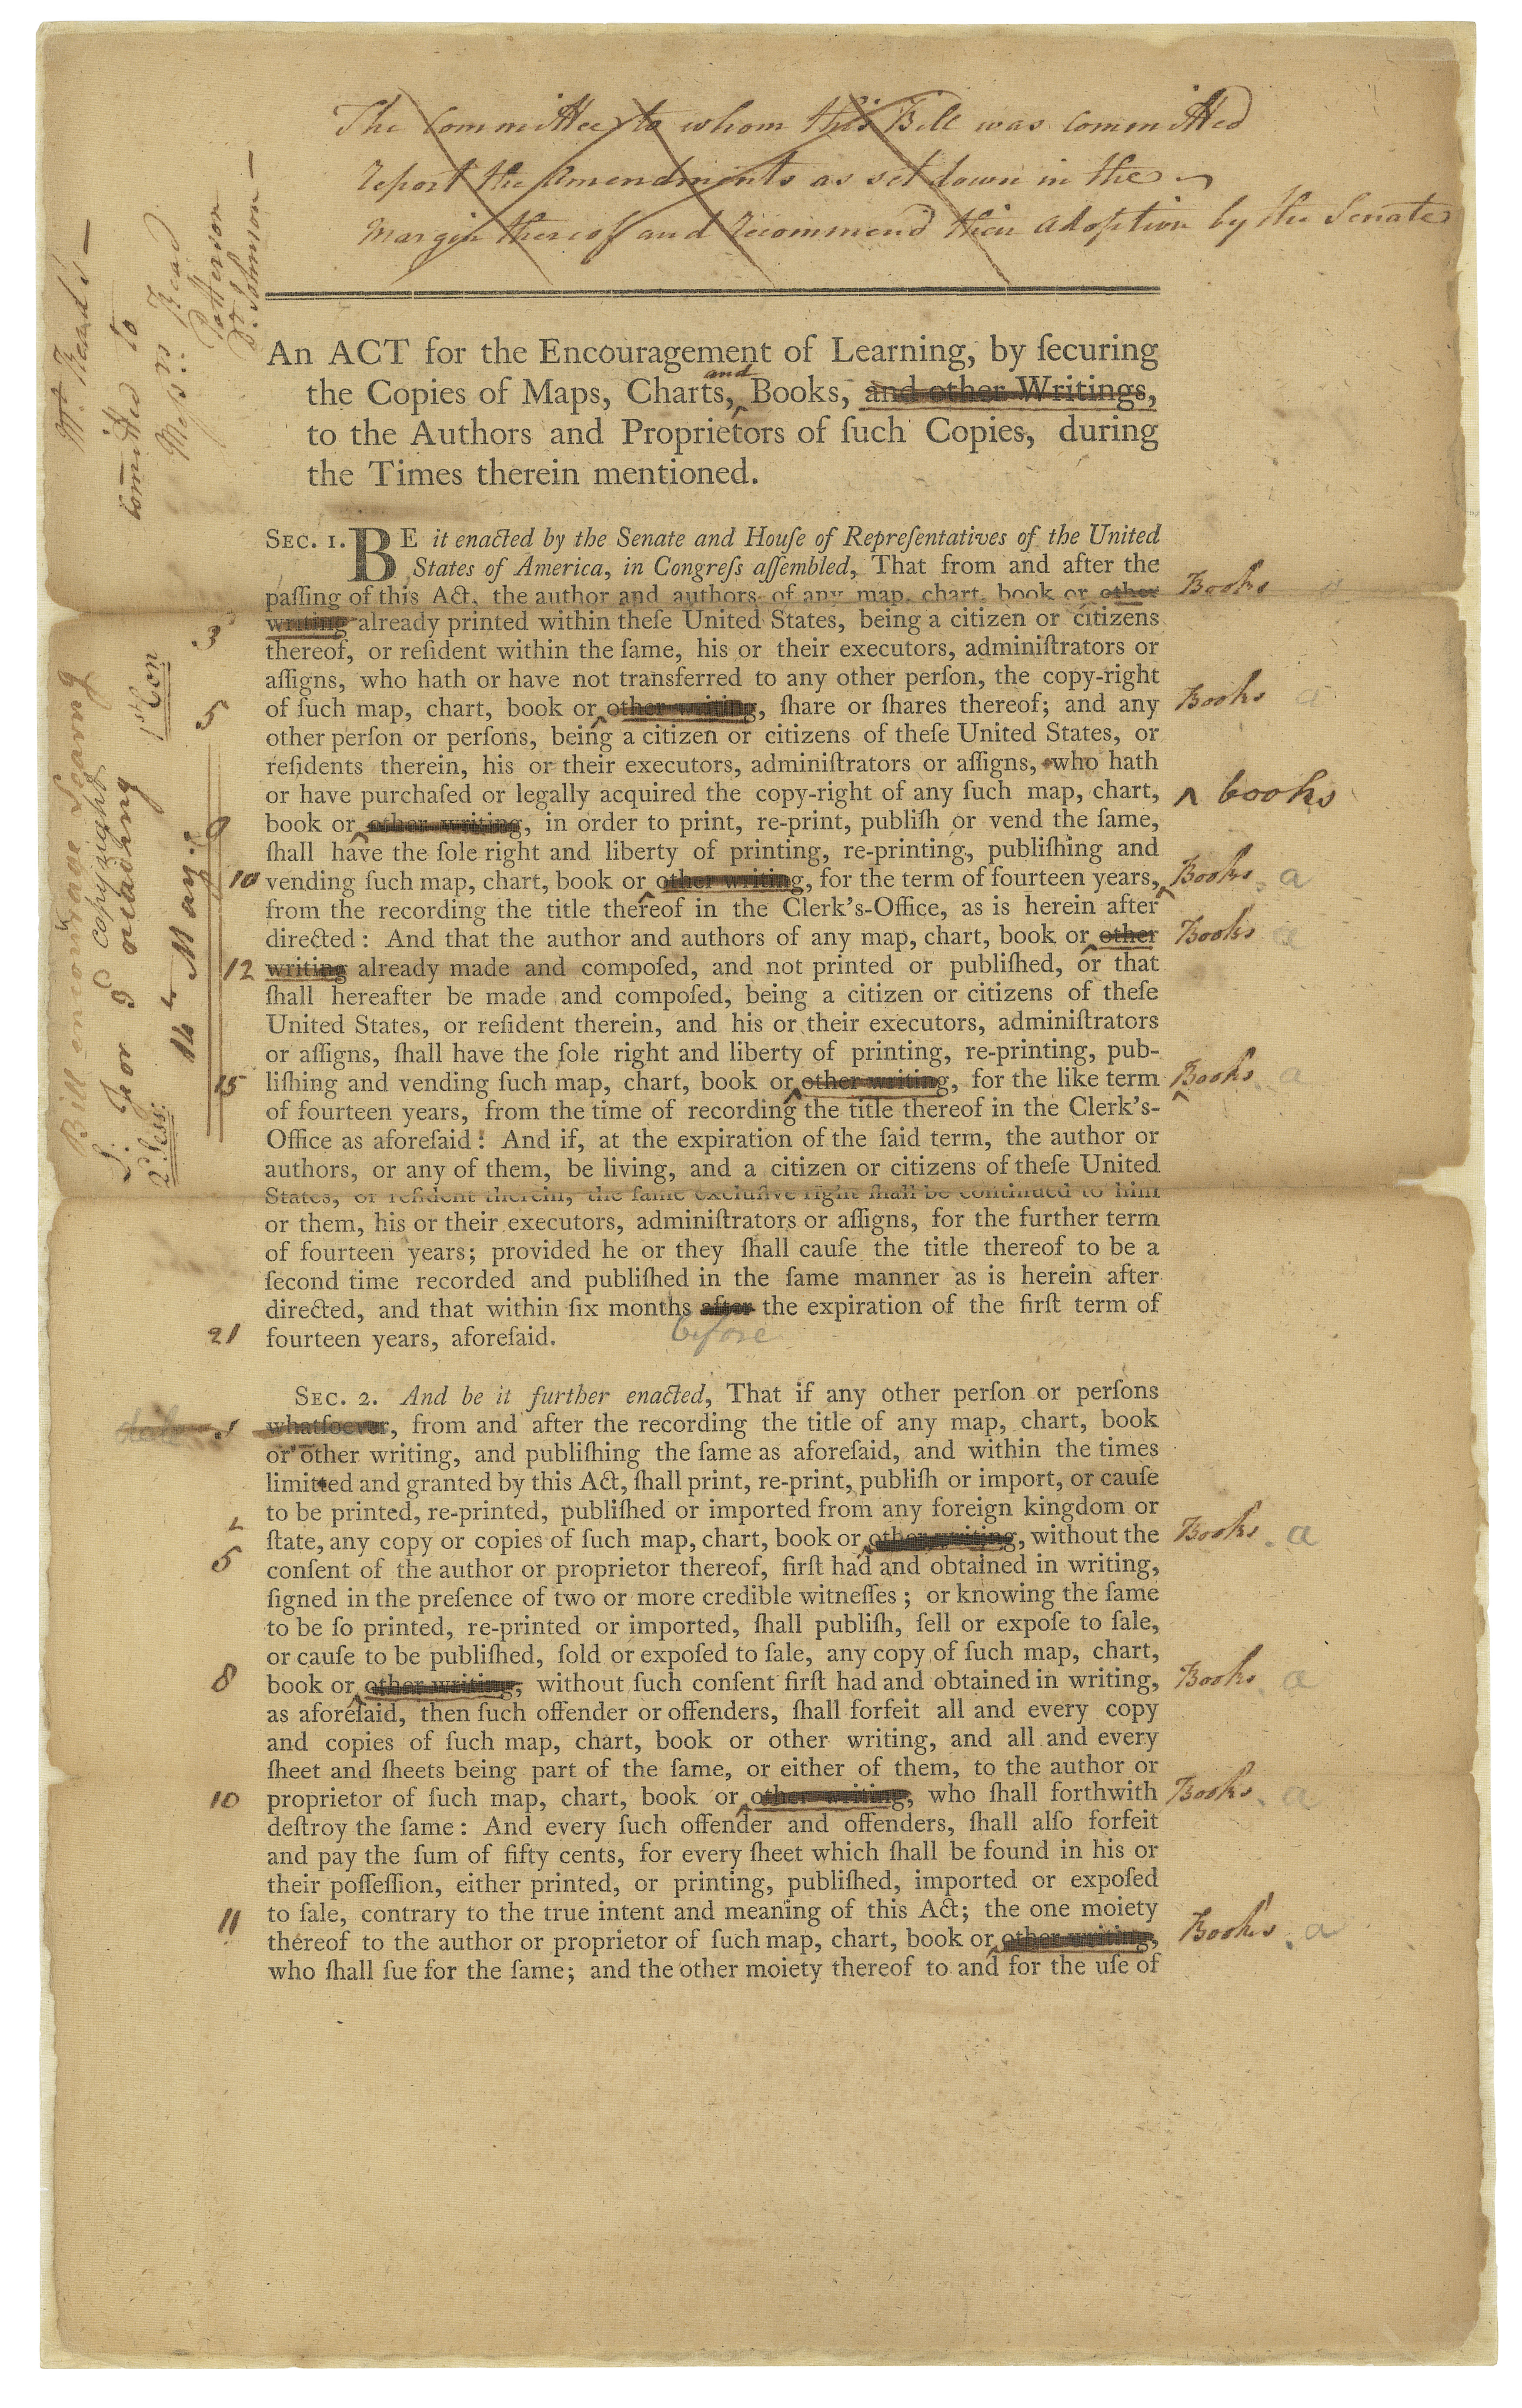 The Committee to whom this Bill was committed
report the Amendments as set down in the
Margin thereof and recommend their adoption by the Senate
Mr. Read's —
Comitted to
Messrs. Read
Patterson
Dr. Johnson —
An ACT for the Encouragement of Learning, by ſecuring
the Copies of Maps, Charts, and Books, and other Writings,
to the Authors and Proprietors of ſuch Copies, during
the Times therein mentioned.
SEC. 1. BE it enacted by the Senate and Houſe of Repreſentatives of the United
States of America, in Congreſs aſſembled, That from and after the
paſſing of this Act, the author and authors of any map, chart, book or other Books
3 writing already printed within theſe United States, being a citizen or citizens
thereof, or reſident within the ſame, his or their executors, adminiſtrators or
aſſigns, who hath or have not transferred to any other perſon, the copy-right
5 of ſuch map, chart, book or other writing, ſhare or ſhares thereof; and any Books a
other perſon or perſons, being a citizen or citizens of theſe United States, or
reſidents therein, his or their executors, adminiſtrators or aſſigns, who hath
or have purchaſed or legally acquired the copy-right of any ſuch map, chart, ^ books
book or other writing, in order to print, re-print, publiſh or vend the ſame,
ſhall have the ſole right and liberty of printing, re-printing, publiſhing and
10 vending ſuch map, chart, book or other writing, for the term of fourteen years, Books a
from the recording the title thereof in the Clerk's-Office, as is herein after
directed: And that the author and authors of any map, chart, book or other Books a
12 writing already made and compoſed, and not printed or publiſhed, or that
ſhall hereafter be made and compoſed, being a citizen or citizens of theſe
United States, or reſident therein, and his or their executors, adminiſtrators
or aſſigns, ſhall have the ſole right and liberty of printing, re-printing, pub-
15 liſhing and vending ſuch map, chart, book or other writing, for the like term Books a
of fourteen years, from the time of recording the title thereof in the Clerk's-
Office as aforeſaid: And if, at the expiration of the ſaid term, the author or
authors, or any of them, be living, and a citizen or citizens of theſe United
States, or reſident therein, the ſame excluſive right ſhall be continued to him
or them, his or their executors, adminiſtrators or aſſigns, for the further term
of fourteen years; provided he or they ſhall cauſe the title thereof to be a
ſecond time recorded and publiſhed in the ſame manner as is herein after
directed, and that within ſix months after the expiration of the firſt term of
before
21 fourteen years, aforeſaid.
Bill encourage Learning
S. copyright
For 2d reading
14th May
1st Con
2d Sess:
SEC. 2. And be it further enacted, That if any other perſon or perſons
dele 1 whatſoever, from and after the recording the title of any map, chart, book
or other writing, and publiſhing the ſame as aforeſaid, and within the times
limitted and granted by this Act, ſhall print, re-print, publiſh or import, or cauſe
to be printed, re-printed, publiſhed or imported from any foreign kingdom or
ſtate, any copy or copies of ſuch map, chart, book or other writing, without the Books a
5 conſent of the author or proprietor thereof, firſt had and obtained in writing,
ſigned in the preſence of two or more credible witneſſes; or knowing the ſame
to be ſo printed, re-printed or imported, ſhall publiſh, ſell or expoſe to ſale,
or cauſe to be publiſhed, ſold or expoſed to ſale, any copy of ſuch map, chart,
8 book or other writing, without ſuch conſent firſt had and obtained in writing, Books a
as aforeſaid, then ſuch offender or offenders, ſhall forfeit all and every copy
and copies of ſuch map, chart, book or other writing, and all and every
ſheet and ſheets being part of the ſame, or either of them, to the author or
10 proprietor of ſuch map, chart, book or other writing, who ſhall forthwith Books a
deſtroy the ſame: And every ſuch offender and offenders, ſhall alſo forfeit
and pay the ſum of fifty cents, for every ſheet which ſhall be found in his or
their poſſeſſion, either printed, or printing, publiſhed, imported or expoſed
to ſale, contrary to the true intent and meaning of this Act; the one moiety
11 thereof to the author or proprietor of ſuch map, chart, book or other writing, Books a
who ſhall ſue for the ſame; and the other moiety thereof to and for the uſe of